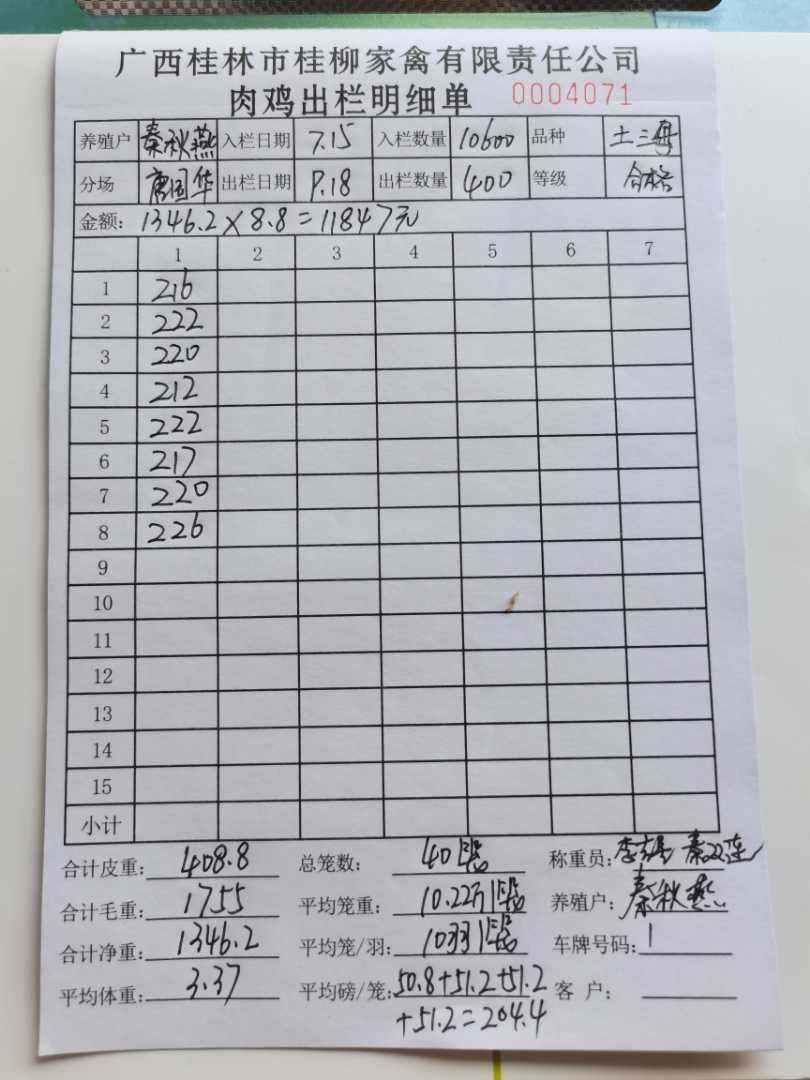 广西桂林市桂柳家禽有限责任公司
肉鸡出栏明细单 0004071
养殖户 秦秋燕 入栏日期 7.15 入栏数量 10600 品种 土三
分场 唐国华 出栏日期 9.18 出栏数量 400 等级 合格
金额: 1346.2×8.8=11847元
1 2 3 4 5 6 7
1 216
2 222
3 220
4 212
5 222
6 217
7 220
8 226
9
10
11
12
13
14
15
小计
合计皮重: 408.8 总笼数: 40 称重员: 秦双连
合计毛重: 1755 平均笼重: 10.22 养殖户: 秦秋燕
合计净重: 1346.2 平均笼/羽: 10 车牌号码: 1
平均体重: 3.37 平均磅/笼: 50.8+51.2+51.2 客 户:
+51.2=204.4